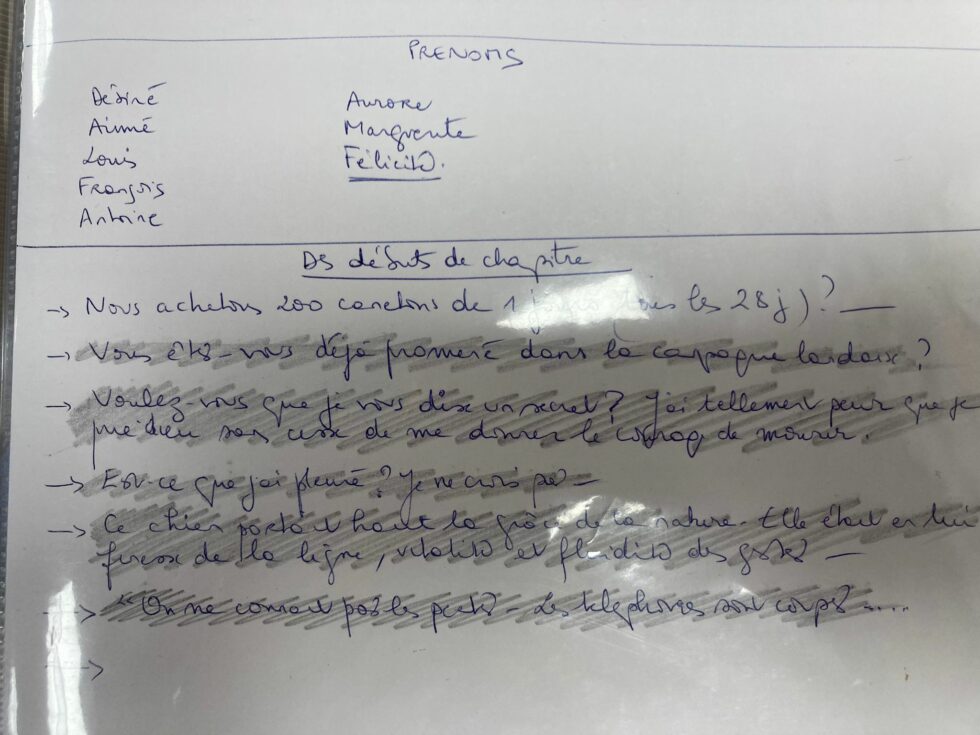 PRENOMS
Désiré Aurore
Aimé Marguerite
Louis Félicité.
François
Antoine
Des débuts de chapitre
→ Nous achetons 200 canetons de 1 les 28 j) ? —
→ Vous êtes-vous déjà promené dans la campagne landaise ?
→ Voulez-vous que je vous dise un secret ? J'ai tellement peur que je
prie Dieu sans cesse de me donner le courage de mourir.
→ Est-ce que j'ai pleuré ? Je ne crois pas —
→ Ce chien portait haut la grâce de la nature. Elle était en lui
finesse de la ligne, vitalité et fluidité des gestes —
→ "On ne connait pas les pertes - Les téléphones sont coupés .....
→